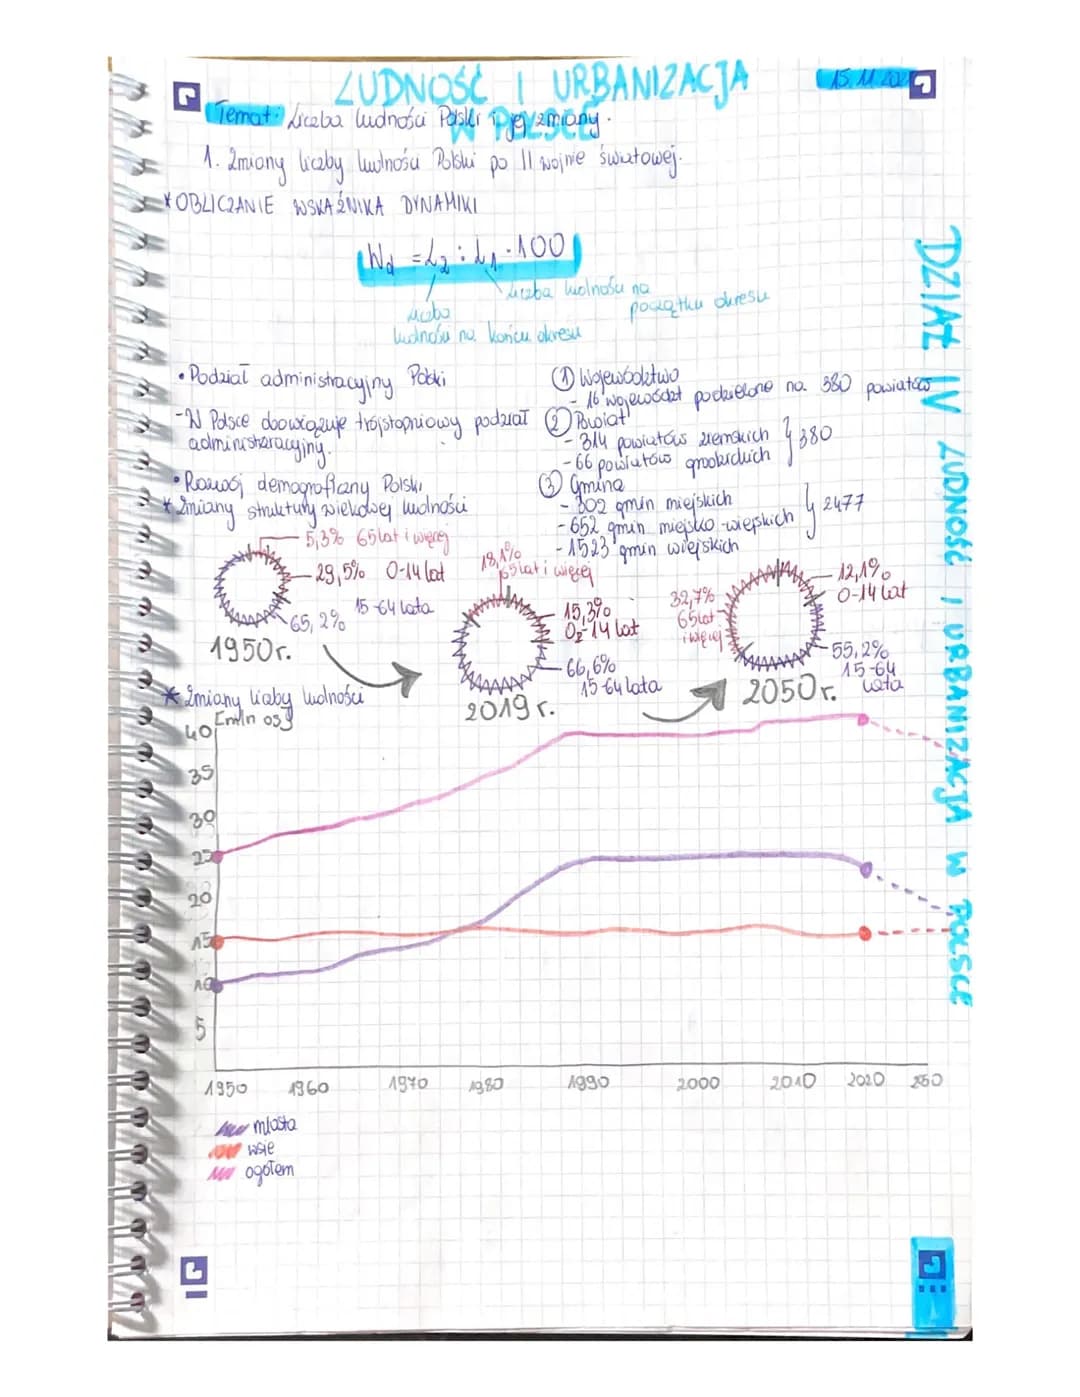 LUDNOŚĆ I URBANIZACJA
W POLSCE
15.11.202
Temat: Liczba ludności Polski i jej zmiany.
1. Zmiany liczby ludności Polski po II wojnie światowej.
*OBLICZANIE WSKAŹNIKA DYNAMIKI
Wd = L2 : L1 · 100
liczba ludności na
początku okresu
liczba
ludności na końcu okresu
• Podział administracyjny Polski
- W Polsce obowiązuje trójstopniowy podział
administracyjny.
① Województwo
- 16 województ podzielone na 380 powiatów
② Powiat
- 314 powiatów ziemskich
- 66 powiatów grodzkich
} 380
③ Gmina
- 302 gmin miejskich
- 652 gmin miejsko-wiejskich
- 1523 gmin wiejskich
} 2477
• Rozwój demograficzny Polski
* Zmiany struktury wiekowej ludności
5,3% 65 lat i więcej
29,5% 0-14 lat
15-64 lata
65,2%
1950r.
18,1%
65 lat i więcej
15,3%
0-14 lat
66,6%
15-64 lata
2019r.
32,7%
65 lat
i więcej
12,1%
0-14 lat
55,2%
15-64
lata
2050r.
* Zmiany liczby ludności
[mln os]
40
35
30
25
20
15
10
5
1950 1960 1970 1980 1990 2000 2010 2020
miasta
wsie
ogółem
DZIAŁ IV LUDNOŚĆ I URBANIZACJA W POLSCE